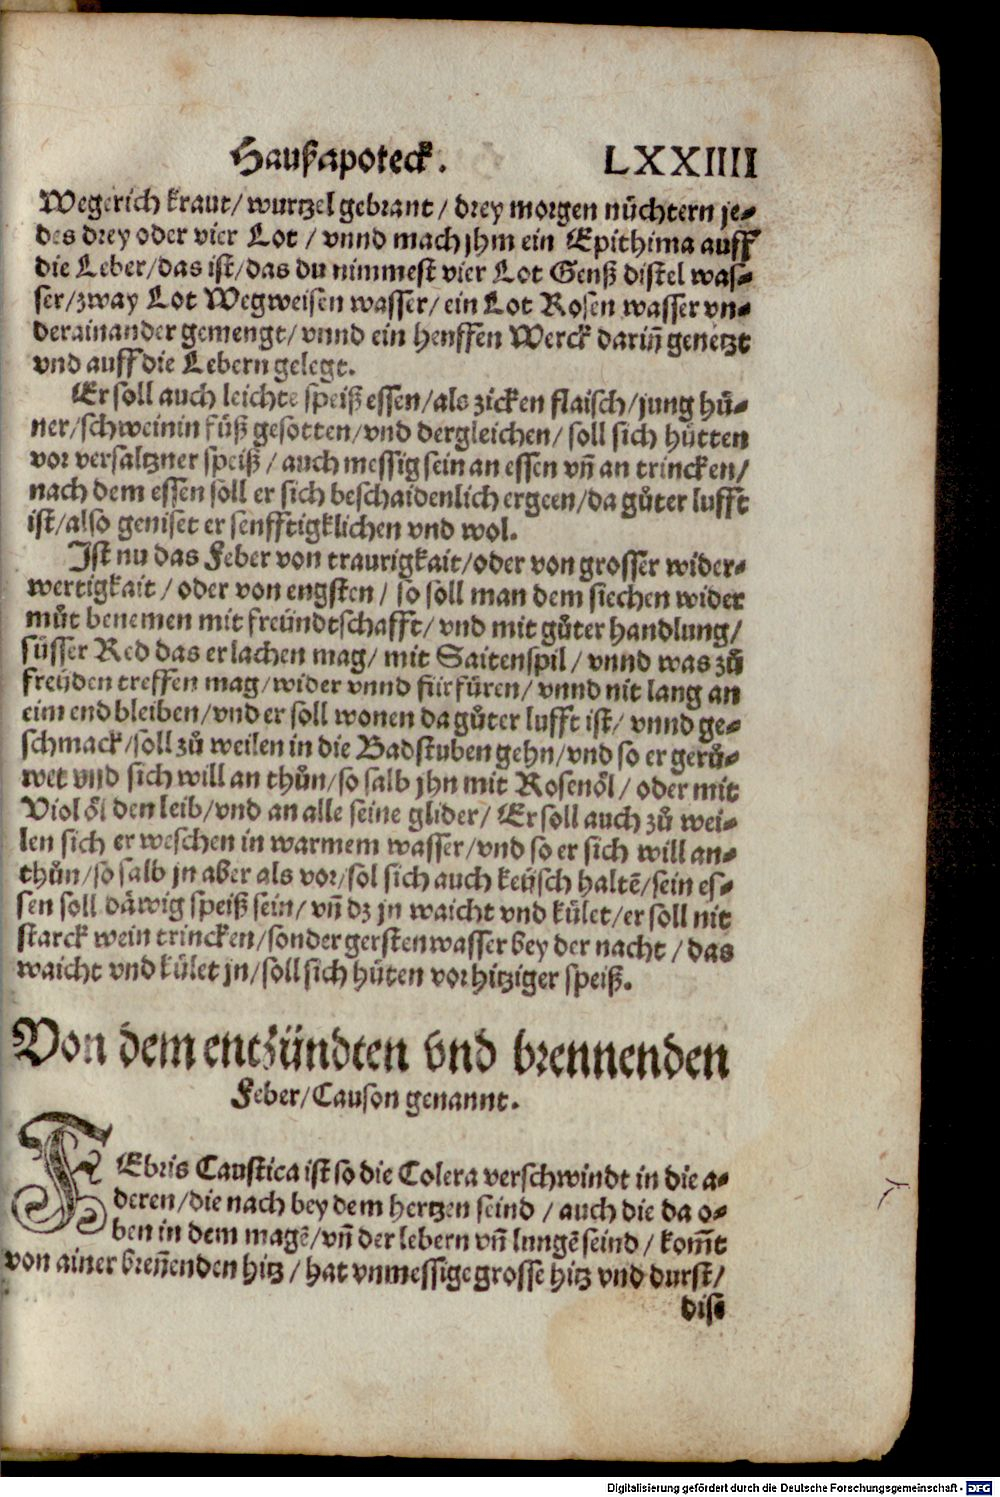 Haußapoteck. LXXIIII
Wegerich kraut/ wurtzel gebrant / drey morgen nüchtern je-
des drey oder vier Lot / vnnd mach jhm ein Epithima auff
die Leber/das ist/das du nimmest vier Lot Genß distel was-
ser/zway Lot Wegweisen wasser/ ein Lot Rosen wasser vn-
derainander gemengt/ vnnd ein henffen Werck dariñ genetzt
vnd auff die Lebern gelegt.
Er soll auch leichte speiß essen/als zicken flaisch/jung hü-
ner/schweinin füß gesotten/vnd dergleichen/ soll sich hütten
vor versaltzner speiß / auch messig sein an essen vñ an trincken/
nach dem essen soll er sich beschaidenlich ergeen/da gůter lufft
ist/also geniset er senfftigklichen vnd wol.
Ist nu das Feber von traurigkait/oder von grosser wider-
wertigkait / oder von engsten / so soll man dem siechen wider
můt benemen mit freündtschafft/ vnd mit gůter handlung/
süsser Red das er lachen mag/ mit Saitenspil / vnnd was zů
freüden treffen mag/wider vnnd für füren/ vnnd nit lang an
eim end bleiben/vnd er soll wonen da gůter lufft ist/ vnnd ge-
schmack/soll zů weilen in die Badstuben gehn/vnd so er gerů-
wet vnd sich will an thůn/so salb jhn mit Rosenöl / oder mit
Viol öl den leib/vnd an alle seine glider/ Er soll auch zů wei-
len sich er weschen in warmem wasser/vnd so er sich will an-
thůn/so salb jn aber als vor/sol sich auch keüsch haltẽ/sein es-
sen soll däwig speiß sein/ vñ dz jn waicht vnd kület/er soll nit
starck wein trincken/sonder gerstenwasser bey der nacht / das
waicht vnd kület jn/soll sich hüten vor hitziger speiß.
Von dem entzündten vnd brennenden
Feber/Causon genannt.
FEbris Caustica ist so die Colera verschwindt in die a-
deren/die nach bey dem hertzen seind / auch die da o-
ben in dem magẽ/vñ der lebern vñ lungẽ seind / kom̃t
von ainer breñenden hitz / hat vnmessige grosse hitz vnd durst/
dise
Digitalisierung gefördert durch die Deutsche Forschungsgemeinschaft - DFG